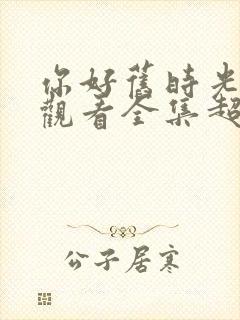 你好舊時光
觀看全集超
公子居寒